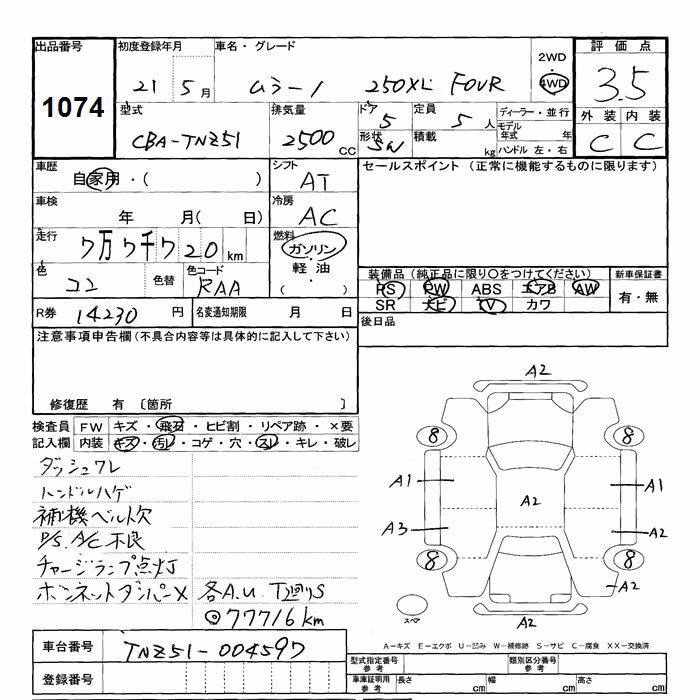 出品番号 初度登録年月 車名・グレード 2WD 評価点
1074 21 5月 ムラーノ 250XL FOUR 4WD 3.5
型式 排気量 ドア 定員 ディーラー・並行 外装 内装
CBA-TNZ51 2500CC 5 5人 モデル年式 年 C C
形状 SW 積載 kg ハンドル 左・右
車歴 シフト セールスポイント (正常に機能するものに限ります)
自家用・( ) AT
車検 冷房
年 月( 日) AC
走行 燃料
7万7千720km ガソリン・軽油・( )
色 色替 色コード 装備品(純正品に限り○をつけてください) 新車保証書
コン RAA PS PW ABS エアB AW 有・無
SR ナビ TV カワ
R券 14230円 名変通知期限 月 日 後日品
注意事項申告欄(不具合内容等は具体的に記入して下さい)
修復歴 有 〔箇所 〕
検査員 FW キズ・飛石・ヒビ割・リペア跡・×要
記入欄 内装 キズ・汚レ・コゲ・穴・スレ・キレ・破レ
ダッシュワレ
ハンドルハゲ
補機ベルト欠
P/S、A/C不良
チャージランプ点灯
ボンネットダンパーX 各A.U.T廻りS
◎77716km
A2
8 8
A1 A2 A1
A3 A2
8 8
A2
スペア A2
車台番号 TNZ51-004597
A-キズ E-エクボ U-凹み W-補修跡 S-サビ C-腐食 XX-交換済
登録番号
型式指定番号 参考 類別区分番号 参考
車庫証明用 参考 長さ cm 幅 cm 高さ cm